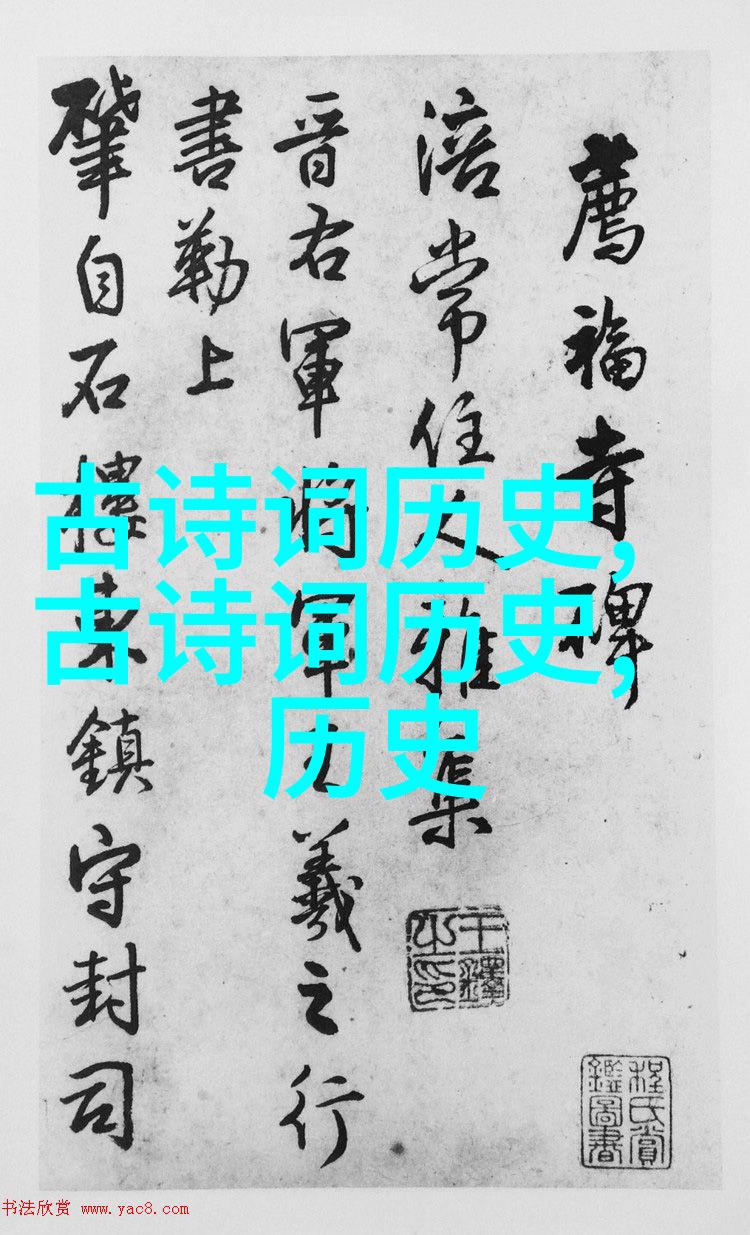 薦福寺碑
涪常住人雅集
晋右軍將軍王羲之行
書勒上
肇自石樓東鎮守封司
古诗词历史,
古诗词历史,
历史
程氏賞鑑圖書
书法欣赏 www.yac8.com